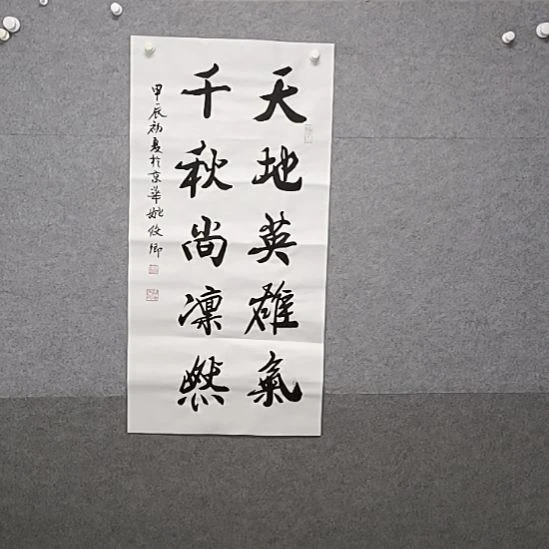 天地英雄氣
千秋尚凜然
甲辰初夏於京華姚俊卿